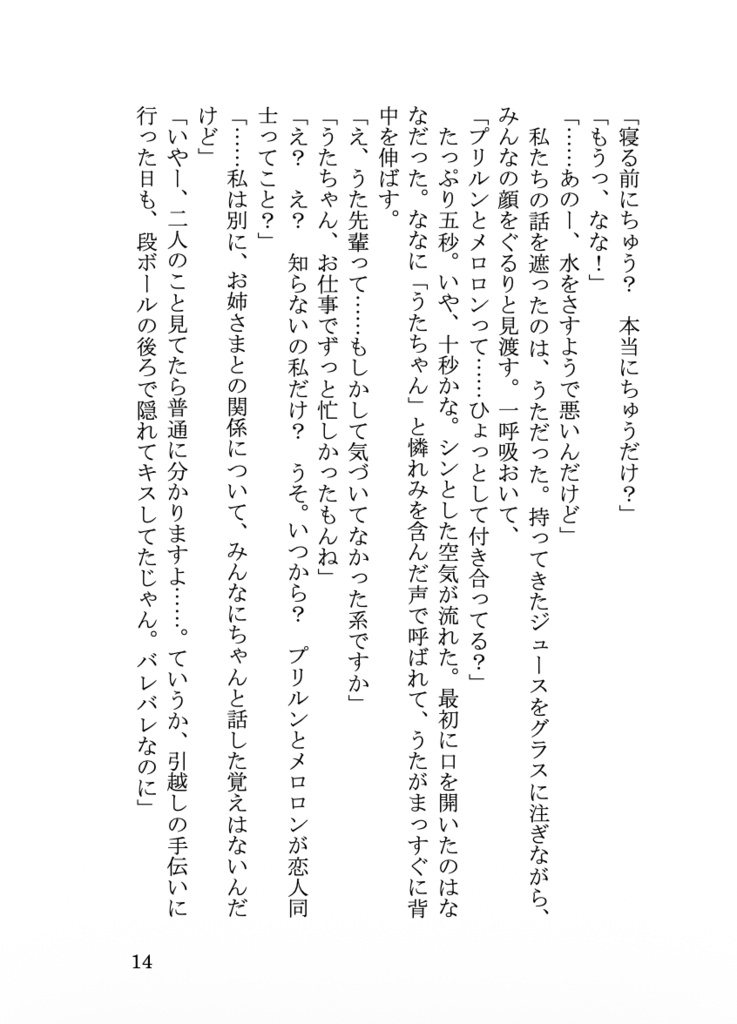 「寝る前にちゅう？　本当にちゅうだけ？」
「もうっ、なな！」
「……あのー、水をさすようで悪いんだけど」
　私たちの話を遮ったのは、うただった。持ってきたジュースをグラスに注ぎながら、
みんなの顔をぐるりと見渡す。一呼吸おいて、
「プリルンとメロロンって……ひょっとして付き合ってる？」
　たっぷり五秒。いや、十秒かな。シンとした空気が流れた。最初に口を開いたのはな
なだった。ななに「うたちゃん」と憐れみを含んだ声で呼ばれて、うたがまっすぐに背
中を伸ばす。
「え、うた先輩って……もしかして気づいてなかった系ですか」
「うたちゃん、お仕事でずっと忙しかったもんね」
「え？　え？　知らないの私だけ？　うそ。いつから？　プリルンとメロロンが恋人同
士ってこと？」
「……私は別に、お姉さまとの関係について、みんなにちゃんと話した覚えはないんだ
けど」
「いやー、二人のこと見てたら普通に分かりますよ……。ていうか、引越しの手伝いに
行った日も、段ボールの後ろで隠れてキスしてたじゃん。バレバレなのに」
14